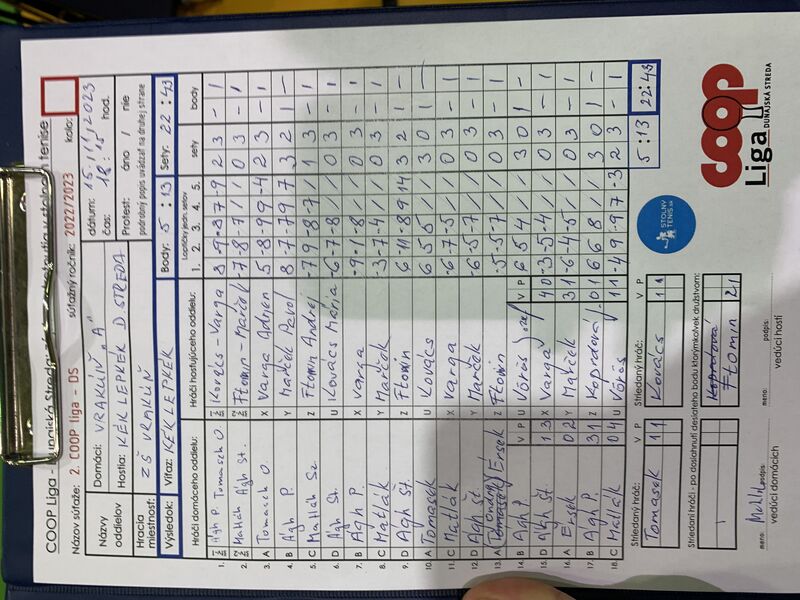 COOP Liga -
Názov súťaže: 2. COOP liga - DS súťažný ročník: 2022/2023 kolo:
Názvy oddielov
Domáci: VRAKÚŇ "A"
Hostia: KÉK LEPKÉK D. STREDA
dátum: 15.11.2023
čas: 18:15 hod.
Hracia miestnosť: ZŠ VRAKÚŇ
Protest: áno / nie
podrobný popis uvádzať na druhej strane
Výsledok: Víťaz: KÉK LEPKÉK Body: 5 : 13 Sety: 22 : 43
Hráči domáceho oddielu: Hráči hosťujúceho oddielu: Loptičky jedn. setov sety body
1. 2. 3. 4. 5.
1. Agh P. Tomasch O. Kovács - Varga 8 -9 -8 7 -9 2 3 - 1
2. Matlák Agh St. Ftomin - Marček -7 -8 -7 / / 0 3 - 1
3. A Tomasch O. X Varga Adrien 5 -8 -9 9 -4 2 3 - 1
4. B Agh P. Y Marček Pavol 8 -7 -7 9 7 3 2 1 -
5. C Matlák Sz. Z Ftomin Andrej -7 9 -8 -7 / 1 3 - 1
6. D Agh St. U Kovács Mária -6 -7 -8 / / 0 3 - 1
7. B Agh P. X Varga -9 -1 -8 / / 0 3 - 1
8. C Matlák Y Marček -3 -7 -4 / / 0 3 - 1
9. D Agh Št. Z Ftomin 6 -11 -8 9 14 3 2 1 -
10. A Tomasek U Kovács 6 5 5 / / 3 0 1 -
11. C Matlák X Varga -6 -7 -5 / / 0 3 - 1
12. D Agh Št. Y Marček -6 -5 -7 / / 0 3 - 1
13. A Érsek Z Ftomin -5 -5 -7 / / 0 3 - 1
V P V P
14. B Agh P. U Vörös József 6 5 4 / / 3 0 1 -
15. D Agh St. 1 3 X Varga 4 0 -3 -5 -4 / / 0 3 - 1
16. A Érsek 0 2 Y Marček 3 1 -6 -4 -5 / / 0 3 - 1
17. B Agh P. 3 1 Z Kopráová 0 1 6 6 8 / / 3 0 1 -
18. C Matlák 0 4 U Vörös 1 1 -4 9 -9 7 -3 2 3 - 1
5 : 13 22 : 43
Striedaný hráč: V P Striedaný hráč: V P
Tomasek 1 1 Kovács 1 1
Striedaní hráči - po dosiahnutí desiateho bodu ktorýmkoľvek družstvom:
Ftomin 2 1
meno: podpis: meno: podpis:
vedúci domácich vedúci hostí
STOLNÝ TENIS.SK
coop
Liga DUNAJSKÁ STREDA